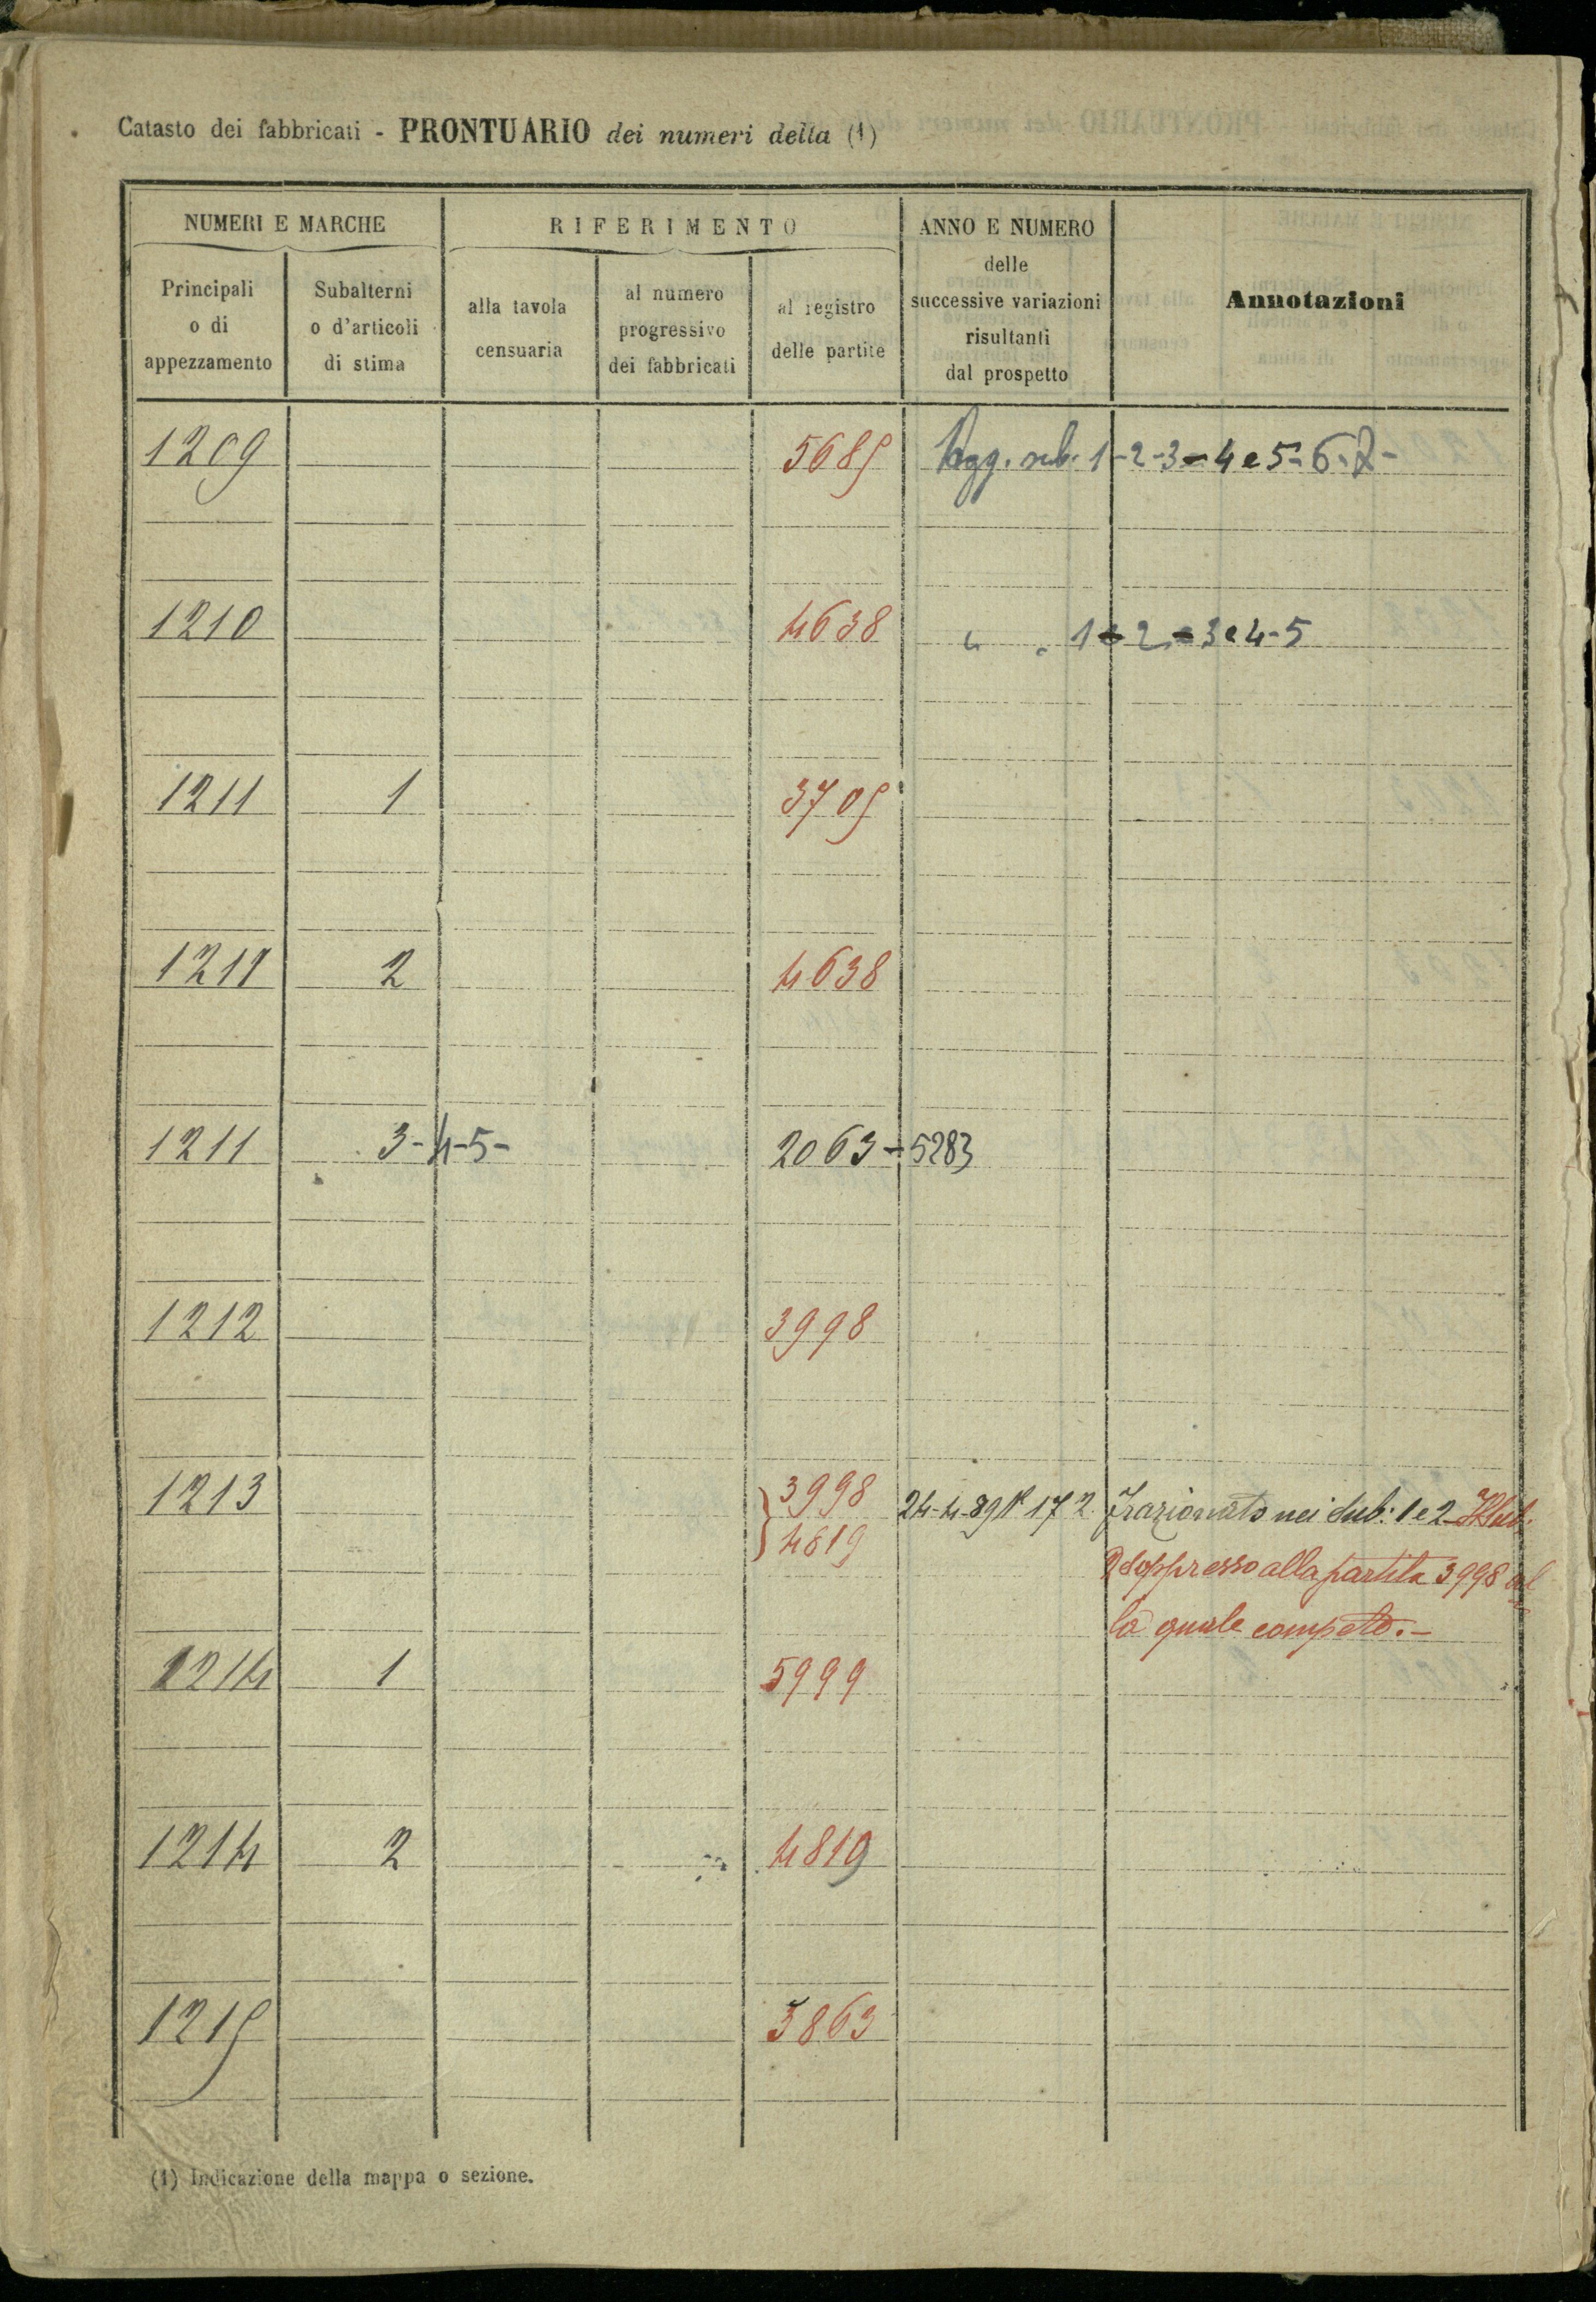 Catasto dei fabbricati - PRONTUARIO dei numeri della (1)
NUMERI E MARCHE
RIFERIMENTO
ANNO E NUMERO
delle
successive variazioni
risultanti
dal prospetto
Annotazioni
Principali
o di
appezzamento
Subalterni
o d'articoli
di stima
alla tavola
censuaria
al numero
progressivo
dei fabbricati
al registro
delle partite
1209 5685 Agg. sub. 1-2-3-4 e 5-6-7-
1210 4638 " " 1-2-3 e 4-5
1211 1 3705
1211 2 4638
1211 3-4-5- 2063-5283
1212 3998
1213 3998 24-4-89 N 172 Frazionato nei Sub: 1 e 2 Il Sub.
4819 2 soppresso alla partita 3998 al
la quale compete.-
1214 1 5999
1214 2 4819
1215 3863
(1) Indicazione della mappa o sezione.